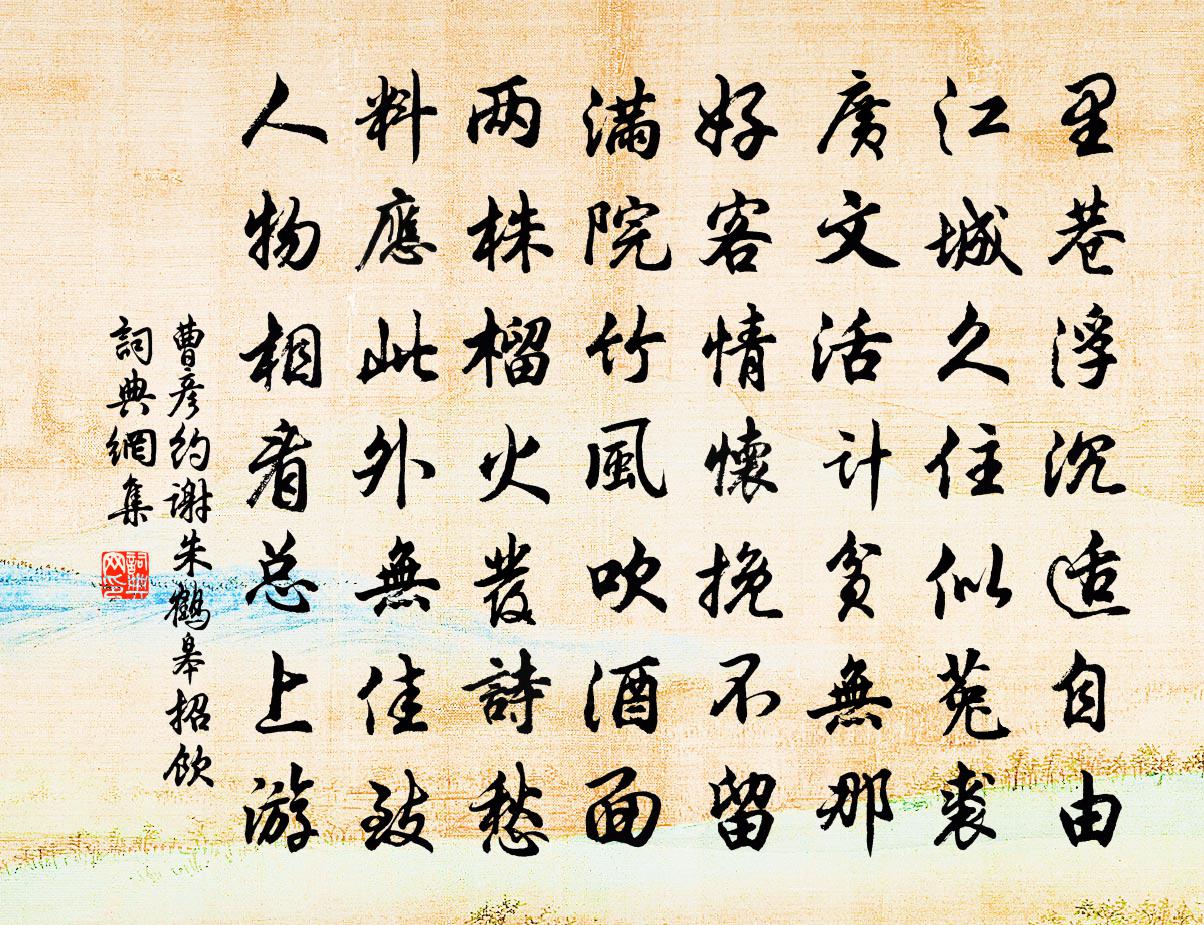 里巷浮沉适自由
江城久住似菟裘
廣文活計貧無那
好客情懷挽不留
滿院竹風吹酒面
两株榴火發詩愁
料應此外無佳致
人物相看总上游
曹彦约谢朱鹤皋招饮
詞典網集